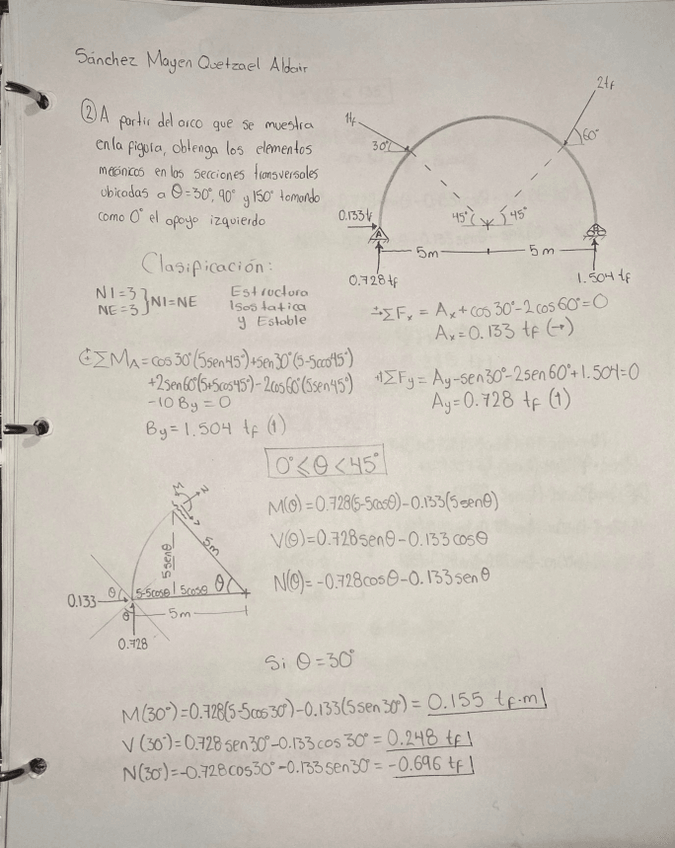 Sánchez Mayen Quetzael Aldair
② A partir del arco que se muestra
en la figura, obtenga los elementos
mecánicos en las secciones transversales
ubicadas a θ=30°, 90° y 150° tomando
como 0° el apoyo izquierdo
1tf
30°
2tf
60°
45°
45°
0.133tf
A
5m
5m
0.728 tf
1.504 tf
Clasificación:
NI=3
NE=3
} NI=NE
Estructura
Isostatica
y Estable
ΣFx = Ax+cos30°-2cos60°=0
Ax=0.133 tf (→)
ΣMA=cos30°(5sen45°)+sen30°(5-5cos45°)
+2sen60°(5+5cos45°)-2cos60°(5sen45°)
-10By=0
By=1.504 tf (↑)
+↑ΣFy=Ay-sen30°-2sen60°+1.504=0
Ay=0.728 tf (↑)
0°≤θ<45°
M(θ)=0.728(5-5cosθ)-0.133(5senθ)
V(θ)=0.728senθ-0.133cosθ
N(θ)=-0.728cosθ-0.133senθ
M
N
V
5senθ
5m
θ
5-5cosθ
5cosθ
θ
0.133
θ
5m
0.728
Si θ=30°
M(30°)=0.728(5-5cos30°)-0.133(5sen30°)=0.155 tf·m
V(30°)=0.728sen30°-0.133cos30°=0.248 tf
N(30°)=-0.728cos30°-0.133sen30°=-0.696 tf